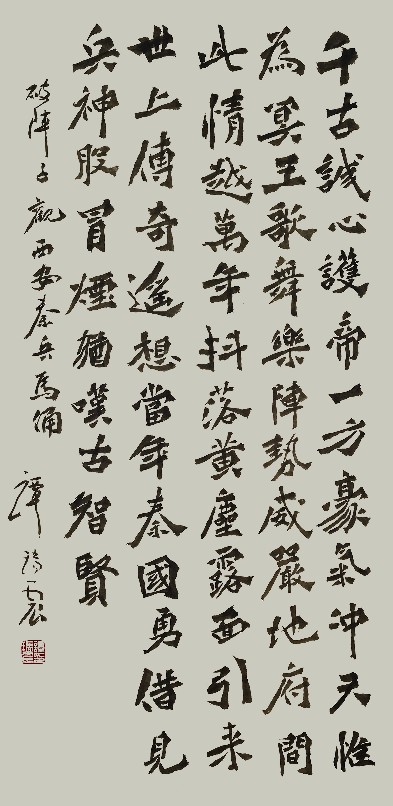 千古誠心護帝一方豪氣沖天惟
為冥王歌舞樂陣勢威嚴地府間
此情越萬年抖落黄塵露面引来
世上傳奇遙想當年秦國勇借見
兵神股冒煙猶嘆古智賢
破陣子觀西安秦兵馬俑